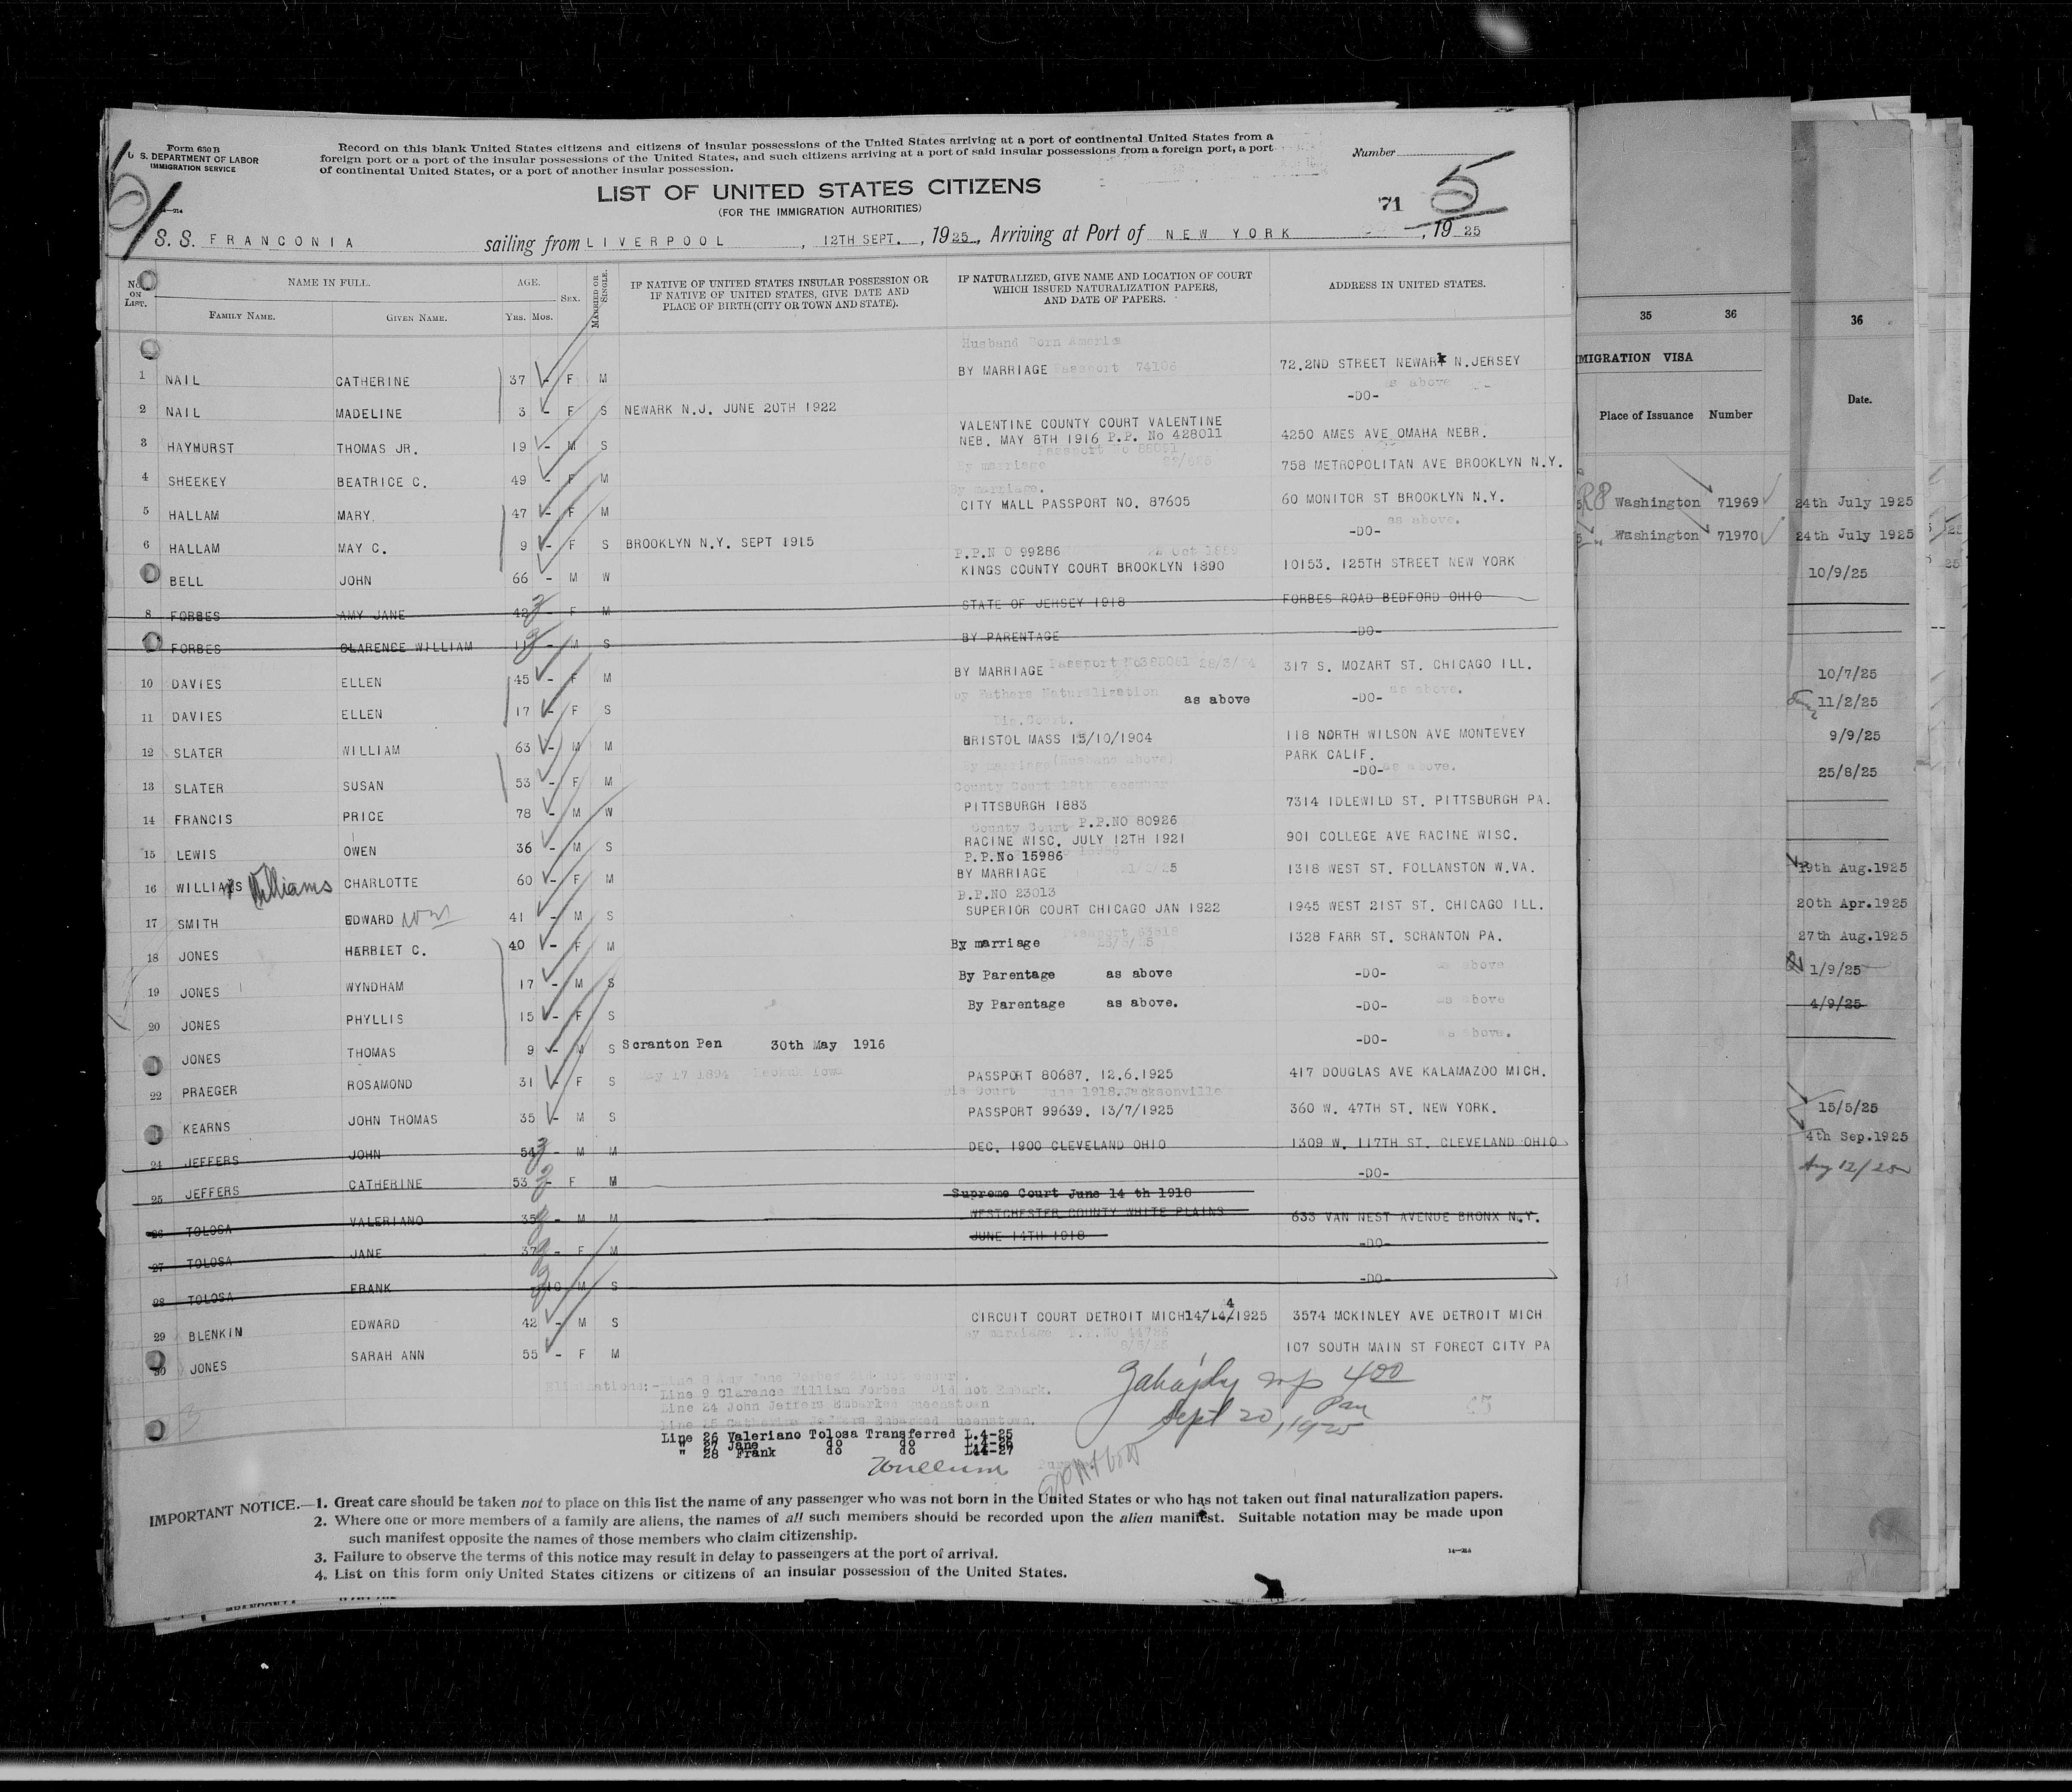 Form 630 B
U. S. DEPARTMENT OF LABOR
IMMIGRATION SERVICE
Record on this blank United States citizens and citizens of insular possessions of the United States arriving at a port of continental United States from a
foreign port or a port of the insular possessions of the United States, and such citizens arriving at a port of said insular possessions from a foreign port, a port
of continental United States, or a port of another insular possession.
Number
LIST OF UNITED STATES CITIZENS
(FOR THE IMMIGRATION AUTHORITIES)
71 5
S. S. FRANCONIA sailing from LIVERPOOL, 12TH SEPT., 1925, Arriving at Port of NEW YORK, 1925
No. ON LIST. NAME IN FULL. AGE. SEX. MARRIED OR SINGLE. IF NATIVE OF UNITED STATES INSULAR POSSESSION OR IF NATIVE OF UNITED STATES, GIVE DATE AND PLACE OF BIRTH (CITY OR TOWN AND STATE). IF NATURALIZED, GIVE NAME AND LOCATION OF COURT WHICH ISSUED NATURALIZATION PAPERS, AND DATE OF PAPERS. ADDRESS IN UNITED STATES.
FAMILY NAME. GIVEN NAME. YRS. MOS.
Husband Born America
1 NAIL CATHERINE 37 - F M BY MARRIAGE Passport 74106 72.2ND STREET NEWARK N.JERSEY
2 NAIL MADELINE 3 - F S NEWARK N.J. JUNE 20TH 1922 -DO- as above
VALENTINE COUNTY COURT VALENTINE
3 HAYHURST THOMAS JR. 19 - M S NEB. MAY 8TH 1916 P.P. No 428011 4250 AMES AVE OMAHA NEBR.
4 SHEEKEY BEATRICE C. 49 - F M By marriage 758 METROPOLITAN AVE BROOKLYN N.Y.
By marriage.
5 HALLAM MARY. 47 - F M CITY HALL PASSPORT NO. 87605 60 MONITOR ST BROOKLYN N.Y.
6 HALLAM MAY C. 9 - F S BROOKLYN N.Y. SEPT 1915 -DO- as above.
P.P.N O 99286
BELL JOHN 66 - M W KINGS COUNTY COURT BROOKLYN 1890 10153. 125TH STREET NEW YORK
8 FORBES AMY JANE 42 - F M STATE OF JERSEY 1918 FORBES ROAD BEDFORD OHIO
FORBES CLARENCE WILLIAM 11 - M S BY PARENTAGE -DO-
10 DAVIES ELLEN 45 - F M BY MARRIAGE Passport 317 S. MOZART ST. CHICAGO ILL.
11 DAVIES ELLEN 17 - F S by Fathers Naturalization as above -DO- as above.
12 SLATER WILLIAM 63 - M M BRISTOL MASS 15/10/1904 118 NORTH WILSON AVE MONTEVEY
PARK CALIF.
13 SLATER SUSAN 53 - F M By marriage (Husband above) -DO- as above.
14 FRANCIS PRICE 78 - M W PITTSBURGH 1883 7314 IDLEWILD ST. PITTSBURGH PA.
County Court P.P.NO 80926
15 LEWIS OWEN 36 - M S RACINE WISC. JULY 12TH 1921 901 COLLEGE AVE RACINE WISC.
P.P.No 15986
16 WILLIAMS Williams CHARLOTTE 60 - F M BY MARRIAGE 1318 WEST ST. FOLLANSTON W.VA.
P.P.NO 23013
17 SMITH EDWARD 41 - M S SUPERIOR COURT CHICAGO JAN 1922 1945 WEST 21ST ST. CHICAGO ILL.
18 JONES HARRIET C. 40 - F M By marriage 1328 FARR ST. SCRANTON PA.
19 JONES WYNDHAM 17 - M S By Parentage as above -DO- as above
20 JONES PHYLLIS 15 - F S By Parentage as above. -DO- as above
JONES THOMAS 9 - M S Scranton Pen 30th May 1916 -DO- as above.
22 PRAEGER ROSAMOND 31 - F S May 17 1894 Keokuk Iowa PASSPORT 80687. 12.6.1925 417 DOUGLAS AVE KALAMAZOO MICH.
Court June 1918. Jacksonville
KEARNS JOHN THOMAS 35 - M S PASSPORT 99639. 13/7/1925 360 W. 47TH ST. NEW YORK.
24 JEFFERS JOHN 54 - M M DEC. 1900 CLEVELAND OHIO 1309 W. 117TH ST. CLEVELAND OHIO
25 JEFFERS CATHERINE 53 - F M -DO-
Supreme Court June 14 th 1918
26 TOLOSA VALERIANO 35 - M M WESTCHESTER COUNTY WHITE PLAINS 633 VAN NEST AVENUE BRONX N.Y.
JUNE 14TH 1918
27 TOLOSA JANE 37 - F M -DO-
28 TOLOSA FRANK 10 M S -DO-
29 BLENKIN EDWARD 42 - M S CIRCUIT COURT DETROIT MICH 14/4/1925 3574 MCKINLEY AVE DETROIT MICH
by marriage
30 JONES SARAH ANN 55 - F M 107 SOUTH MAIN ST FORECT CITY PA
Eliminations:- Line 8 Amy Jane Forbes did not embark.
Line 9 Clarence William Forbes Did not Embark.
Line 24 John Jeffers Embarked Queenstown
Line 25 Catherine Jeffers Embarked Queenstown.
Line 26 Valeriano Tolosa Transferred L.4-25
" 27 Jane do do L.4-26
" 28 Frank do do L.4-27
Sept 20, 1925
IMPORTANT NOTICE.—1. Great care should be taken not to place on this list the name of any passenger who was not born in the United States or who has not taken out final naturalization papers.
2. Where one or more members of a family are aliens, the names of all such members should be recorded upon the alien manifest. Suitable notation may be made upon
such manifest opposite the names of those members who claim citizenship.
3. Failure to observe the terms of this notice may result in delay to passengers at the port of arrival.
4. List on this form only United States citizens or citizens of an insular possession of the United States.
35 36
MIGRATION VISA
Place of Issuance Number
Washington 71969
Washington 71970
36
Date.
24th July 1925
24th July 1925
10/9/25
10/7/25
11/2/25
9/9/25
25/8/25
19th Aug.1925
20th Apr.1925
27th Aug.1925
1/9/25
4/9/25
15/5/25
4th Sep.1925
Aug 12/25